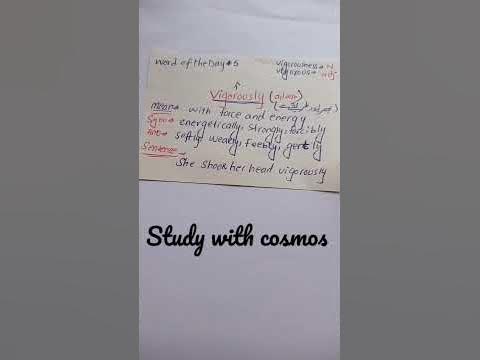 Word of the Day # 5
vigorousness → N
vigorous → Adj
Vigorously (adver)
mean → with force and energy
Syn → energetically, strongly, forcibly
Ant → softly, weakly, feebly, gently
Sentence →
She shook her head vigorously
Study with cosmos